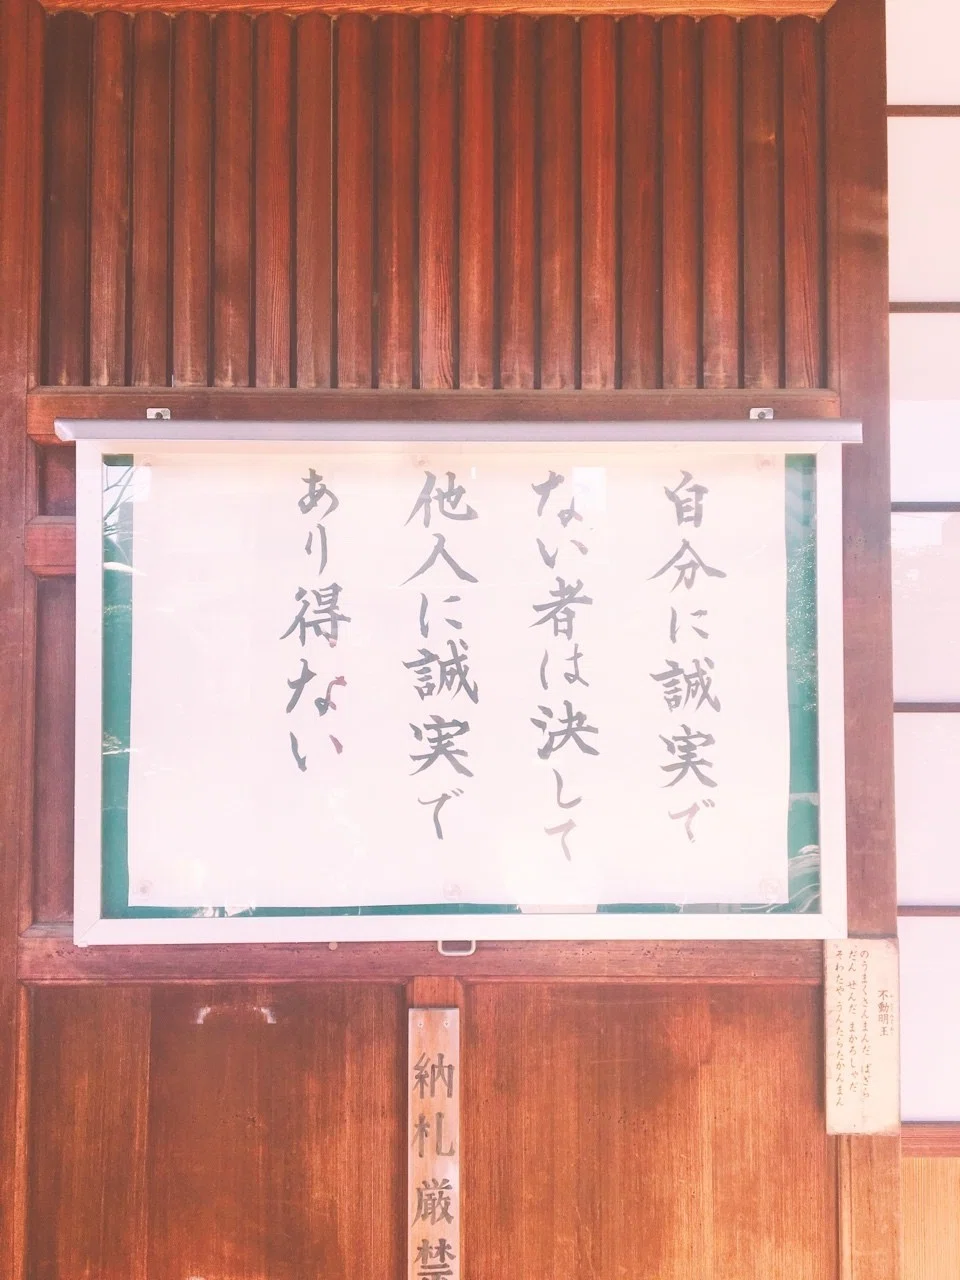 自分に誠実で
ない者は決して
他人に誠実で
あり得ない
納札厳禁
不動明王
のうまくさんまんだ ばざら
だん せんだ まかろしゃだ
そわたや うんたらたかんまん